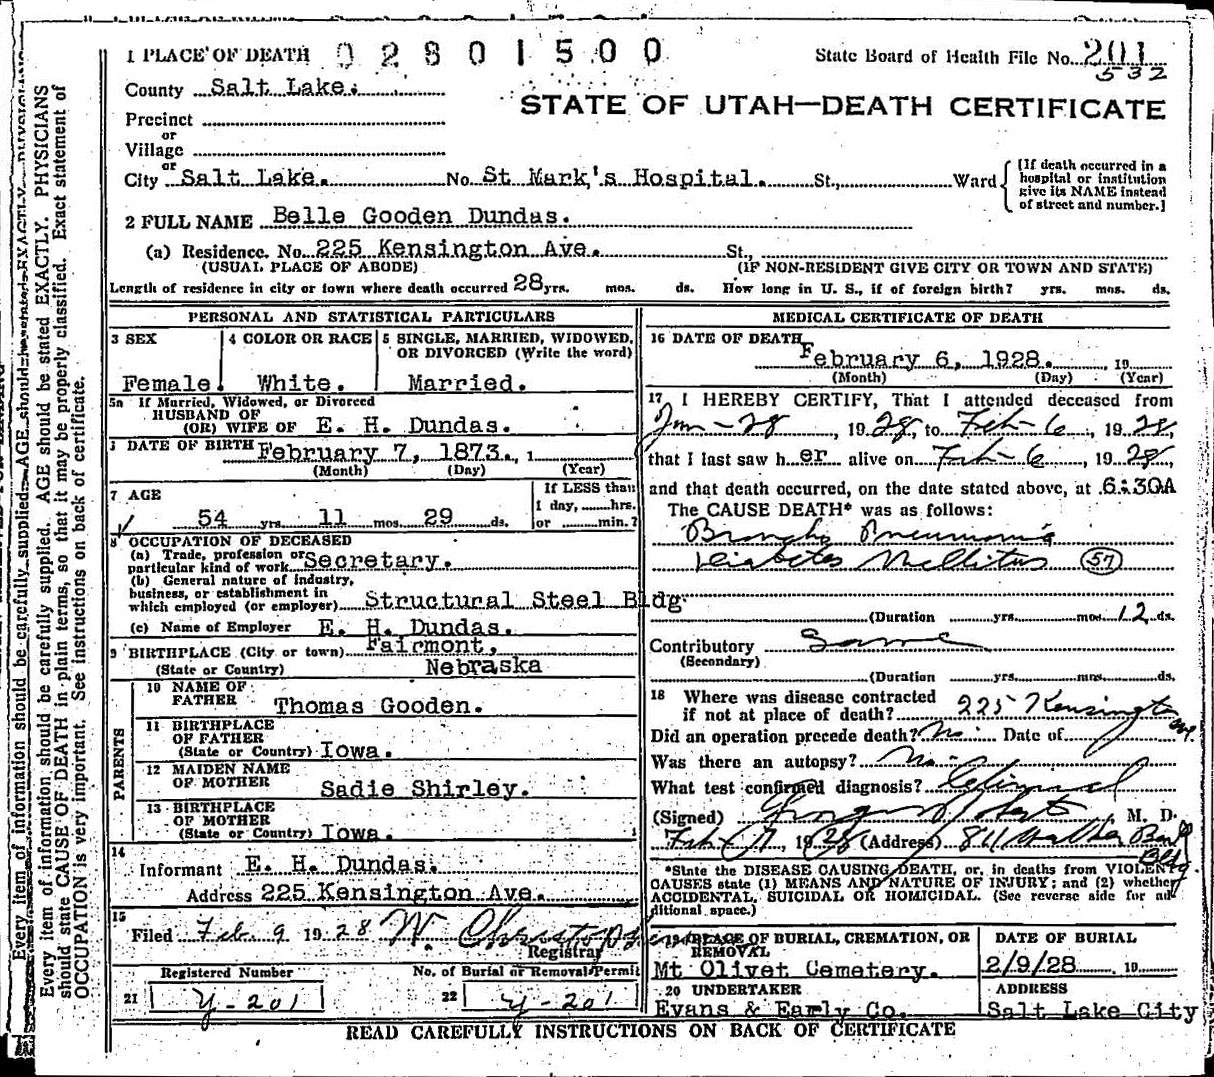 1 PLACE OF DEATH 02801500
State Board of Health File No. 201
532
County Salt Lake.
STATE OF UTAH—DEATH CERTIFICATE
Precinct
or
Village
or
City Salt Lake. No. St Mark's Hospital. St., Ward
[If death occurred in a
hospital or institution
give its NAME instead
of street and number.]
2 FULL NAME Belle Gooden Dundas.
(a) Residence. No. 225 Kensington Ave. St.,
(USUAL PLACE OF ABODE) (IF NON-RESIDENT GIVE CITY OR TOWN AND STATE)
Length of residence in city or town where death occurred 28 yrs. mos. ds. How long in U. S., if of foreign birth? yrs. mos. ds.
PERSONAL AND STATISTICAL PARTICULARS
3 SEX
Female.
4 COLOR OR RACE
White.
5 SINGLE, MARRIED, WIDOWED,
OR DIVORCED (Write the word)
Married.
5a If Married, Widowed, or Divorced
HUSBAND OF
(OR) WIFE OF E. H. Dundas.
DATE OF BIRTH February 7, 1873. , 1
(Month) (Day) (Year)
7 AGE
54 yrs. 11 mos. 29 ds.
If LESS than
1 day, hrs.
or min.?
8 OCCUPATION OF DECEASED
(a) Trade, profession or
particular kind of work Secretary.
(b) General nature of industry,
business, or establishment in
which employed (or employer) Structural Steel Bldg.
(c) Name of Employer E. H. Dundas.
9 BIRTHPLACE (City or town) Fairmont,
(State or Country) Nebraska
PARENTS
10 NAME OF
FATHER Thomas Gooden.
11 BIRTHPLACE
OF FATHER
(State or Country) Iowa.
12 MAIDEN NAME
OF MOTHER Sadie Shirley.
13 BIRTHPLACE
OF MOTHER
(State or Country) Iowa.
14
Informant E. H. Dundas.
Address 225 Kensington Ave.
15
Filed Feb 9 1928 W. Christopherson
Registrar
Registered Number
21 y-201
No. of Burial or Removal Permit
22 y-201
MEDICAL CERTIFICATE OF DEATH
16 DATE OF DEATH
February 6, 1928. , 19
(Month) (Day) (Year)
17 I HEREBY CERTIFY, That I attended deceased from
Jan-28, 1928, to Feb-6, 1928,
that I last saw her alive on Feb-6, 1928,
and that death occurred, on the date stated above, at 6:30A
The CAUSE DEATH* was as follows:
Broncho Pneumonia
Diabetes Mellitus 57
(Duration yrs. mos. 12 ds.
Contributory Same
(Secondary)
(Duration yrs. mos. ds.
18 Where was disease contracted
if not at place of death? 225 Kensington
Ave.
Did an operation precede death? No Date of
Was there an autopsy? No
What test confirmed diagnosis? Clinical
(Signed) , M. D.
Feb-7, 1928 (Address) 811 Walker Bank
Bldg.
*State the DISEASE CAUSING DEATH, or, in deaths from VIOLENT
CAUSES state (1) MEANS AND NATURE OF INJURY; and (2) whether
ACCIDENTAL, SUICIDAL OR HOMICIDAL. (See reverse side for ad
ditional space.)
19 PLACE OF BURIAL, CREMATION, OR
REMOVAL
Mt Olivet Cemetery.
DATE OF BURIAL
2/9/28 19
20 UNDERTAKER
Evans & Early Co.
ADDRESS
Salt Lake City
READ CAREFULLY INSTRUCTIONS ON BACK OF CERTIFICATE
Every item of information should be carefully supplied. AGE should be stated EXACTLY. PHYSICIANS
should state CAUSE OF DEATH in plain terms, so that it may be properly classified. Exact statement of
OCCUPATION is very important. See instructions on back of certificate.